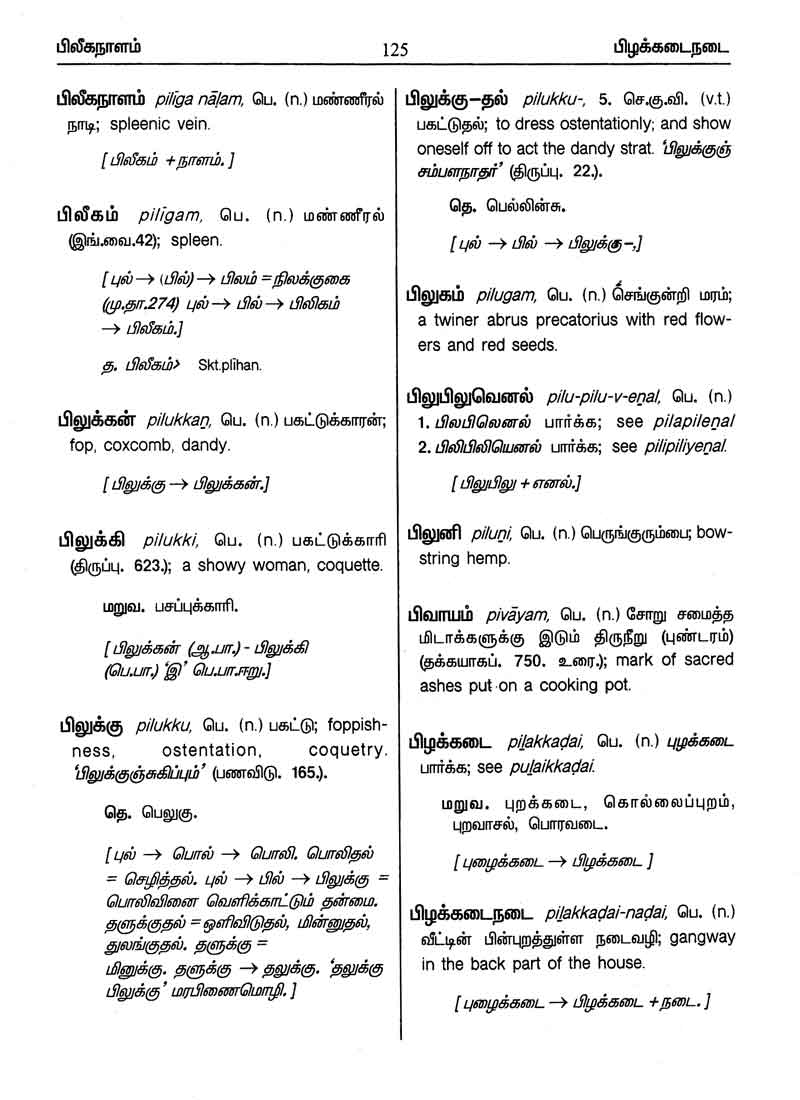 பிலீகநாளம் 125 பிழக்கடைநடை
பிலீகநாளம் pilīga nāḷam, பெ. (n.) மண்ணீரல்
நாடி; spleenic vein.
[பிலீகம் +நாளம்.]
பிலீகம் pilīgam, பெ. (n.) மண்ணீரல்
(இங்.வை.42); spleen.
[புல் → (பில்) → பிலம் =நிலக்குகை
(மு.தா.274) புல் → பில் → பிலிகம்
→ பிலீகம்.]
த. பிலீகம்> Skt.plīhan.
பிலுக்கன் pilukkaṉ, பெ. (n.) பகட்டுக்காரன்;
fop, coxcomb, dandy.
[பிலுக்கு → பிலுக்கன்.]
பிலுக்கி pilukki, பெ. (n.) பகட்டுக்காரி
(திருப்பு. 623.); a showy woman, coquette.
மறுவ. பசப்புக்காரி.
[பிலுக்கன் (ஆ.பா.) - பிலுக்கி
(பெ.பா.) 'இ' பெ.பா.ஈறு.]
பிலுக்கு pilukku, பெ. (n.) பகட்டு; foppish-
ness, ostentation, coquetry.
'பிலுக்குஞ்சுகிப்பும்' (பணவிடு. 165.).
தெ. பெலுகு.
[புல் → பொல் → பொலி. பொலிதல்
= செழித்தல். புல் → பில் → பிலுக்கு =
பொலிவினை வெளிக்காட்டும் தன்மை.
தளுக்குதல் =ஒளிவிடுதல், மின்னுதல்,
துலங்குதல். தளுக்கு =
மினுக்கு. தளுக்கு → தலுக்கு. 'தலுக்கு
பிலுக்கு' மரபிணைமொழி.]
பிலுக்கு-தல் pilukku-, 5. செ.கு.வி. (v.t.)
பகட்டுதல்; to dress ostentationly; and show
oneself off to act the dandy strat. 'பிலுக்குஞ்
சம்பளநாதர்' (திருப்பு. 22.).
தெ. பெல்லின்சு.
[புல் → பில் → பிலுக்கு-,]
பிலுகம் pilugam, பெ. (n.) செங்குன்றி மரம்;
a twiner abrus precatorius with red flow-
ers and red seeds.
பிலுபிலுவெனல் pilu-pilu-v-eṉal, பெ. (n.)
1. பிலபிலெனல் பார்க்க; see pilapileṉal
2. பிலிபிலியெனல் பார்க்க; see pilipiliyeṉal.
[பிலுபிலு + எனல்.]
பிலுனி piluṉi, பெ. (n.) பெருங்குரும்பை; bow-
string hemp.
பிவாயம் pivāyam, பெ. (n.) சோறு சமைத்த
மிடாக்களுக்கு இடும் திருநீறு (புண்டரம்)
(தக்கயாகப். 750. உரை.); mark of sacred
ashes put on a cooking pot.
பிழக்கடை piḻakkaḍai, பெ. (n.) புழக்கடை
பார்க்க; see puḻaikkaḍai.
மறுவ. புறக்கடை, கொல்லைப்புறம்,
புறவாசல், பொரவடை.
[புழைக்கடை → பிழக்கடை]
பிழக்கடைநடை piḻakkaḍai-naḍai, பெ. (n.)
வீட்டின் பின்புறத்துள்ள நடைவழி; gangway
in the back part of the house.
[புழைக்கடை → பிழக்கடை +நடை.]